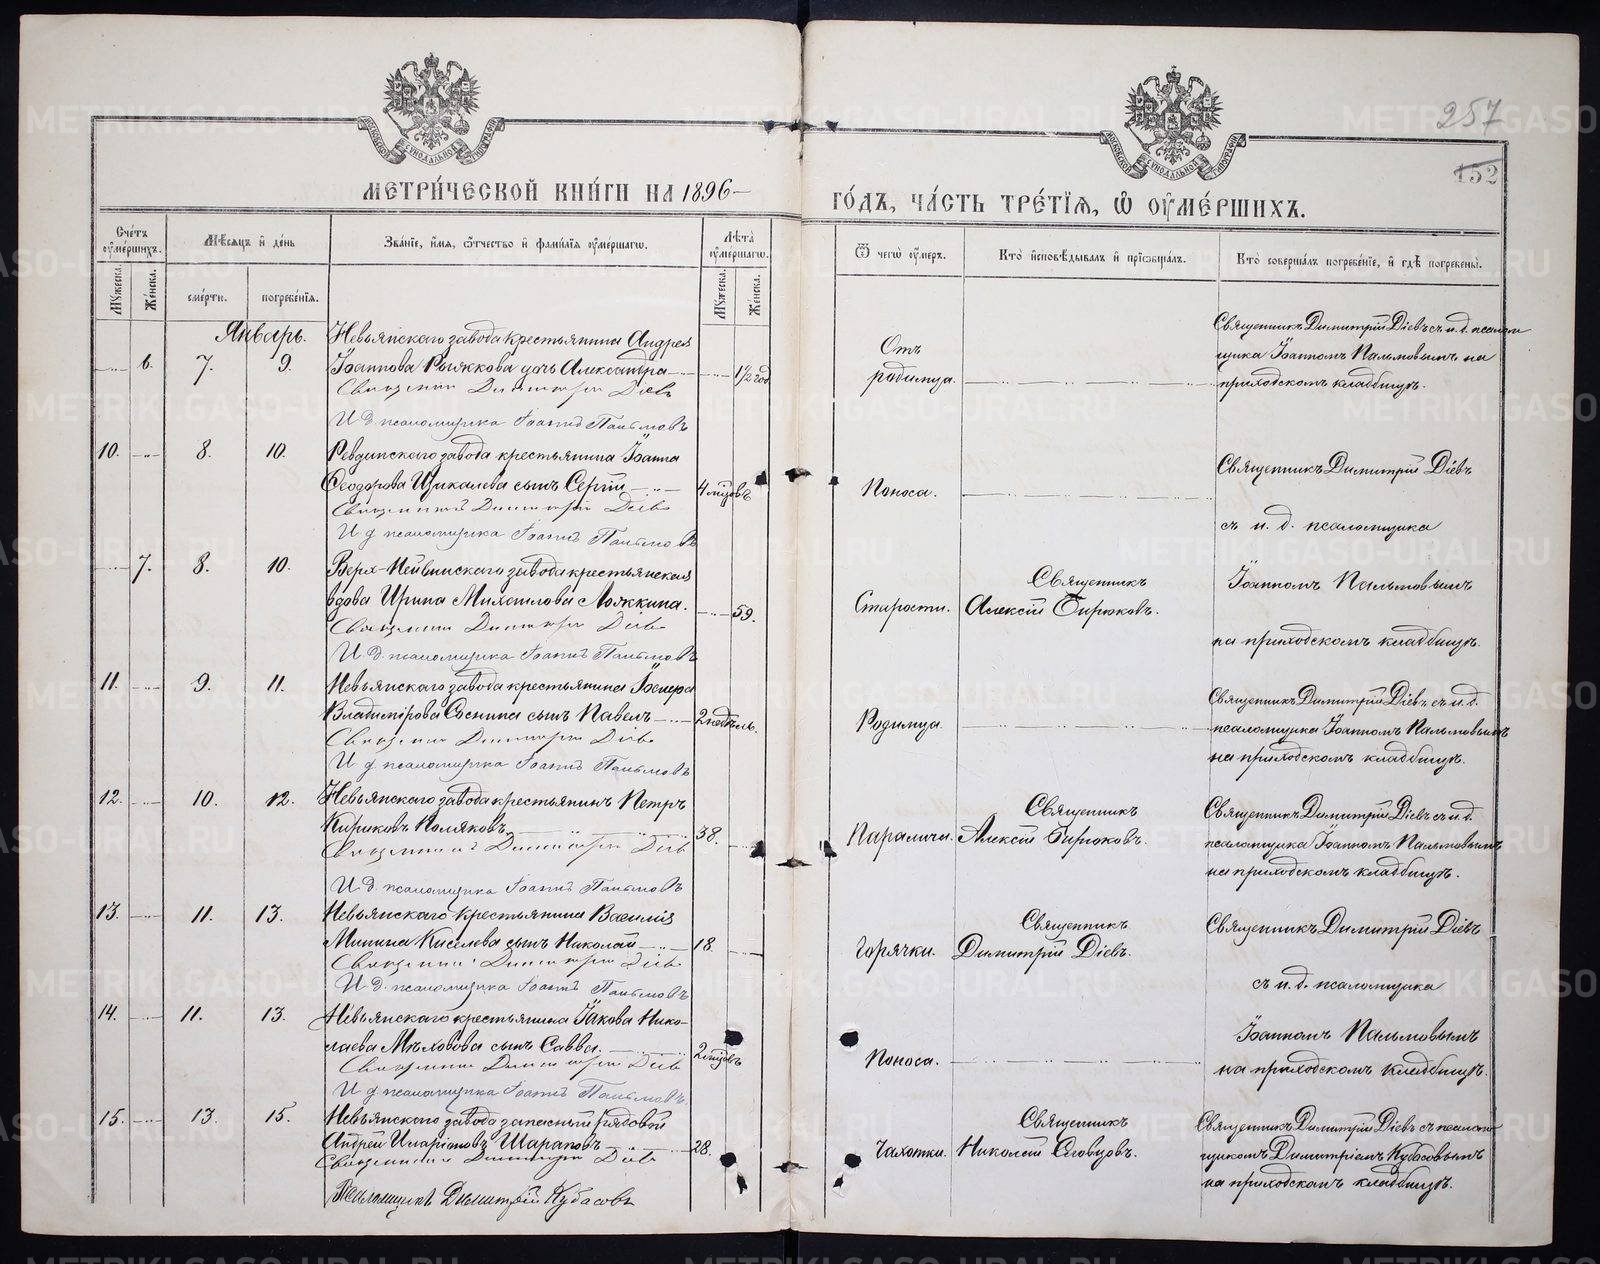 257
152
МОСКОВСКОЙ СѴНОДАЛЬНОЙ ТИПОГРАФІИ
МОСКОВСКОЙ СѴНОДАЛЬНОЙ ТИПОГРАФІИ
МЕТРИ́ЧЕСКОЙ КНИ́ГИ НА 1896
ГО́ДЪ, ЧА́СТЬ ТРЕ́ТІѦ, Ѽ ОУМЕ́РШИХЪ.
Сче́тъ оуме́ршихъ.
Мꙋжеска.
Же́нска.
Мѣ́сѧцъ и҆ де́нь
сме́рти.
погребе́нїѧ.
Зва́нїе, и҆́мѧ, ѻ҆́тчество и҆ фами́лїѧ оуме́ршагѡ.
Лѣ́та оуме́ршагѡ.
Мꙋжеска.
Же́нска.
Ѿ чегѡ̀ оу́меръ.
Кто̀ и҆сповѣ́дывалъ и҆ прїѡбща́лъ.
Кто̀ соверша́лъ погребе́нїе, и҆ гдѣ̀ погребены̀.
Январь.
6. 7. 9.
Невьянскаго завода крестьянина Андрея
Іоаннова Рыжкова дочь Александра
1½ год.
Священникъ Димитрій Діевъ
И. д. псаломщика Іоаннъ Пальмовъ
Отъ
родимца.
Священникъ Димитрій Діевъ съ и. д. псалом
щика Іоанномъ Пальмовымъ на
приходскомъ кладбищѣ.
10. 8. 10.
Ревдинскаго завода крестьянина Іоанна
Ѳеодорова Щукалева сынъ Сергій
4 мцовъ
Священникъ Димитрій Діевъ
И д псаломщика Іоаннъ Пальмовъ
Поноса.
Священникъ Димитрій Діевъ
съ и. д. псаломщика
7. 8. 10.
Верх-Нейвинскаго завода крестьянская
вдова Ирина Михаилова Ложкина.
59.
Священникъ Димитрій Діевъ
И д. псаломщика Іоаннъ Пальмовъ
Старости.
Священникъ
Алексій Бирюковъ.
Іоанномъ Пальмовымъ
на приходскомъ кладбищѣ.
11. 9. 11.
Невьянскаго завода крестьянина
Владимірова Соснина сынъ Павелъ
2 недѣль.
Священникъ Димитрій Діевъ
И д. псаломщика Іоаннъ Пальмовъ
Родимца.
Священникъ Димитрій Діевъ съ и. д.
псаломщика Іоанномъ Пальмовымъ
на приходскомъ кладбищѣ.
12. 10. 12.
Невьянскаго завода крестьянинъ Петръ
Кириковъ Поляковъ
38.
Священникъ Димитрій Діевъ
И д. псаломщика Іоаннъ Пальмовъ
Параличи.
Священникъ
Алексій Бирюковъ.
Священникъ Димитрій Діевъ съ и. д.
псаломщика Іоанномъ Пальмовымъ
на приходскомъ кладбищѣ.
13. 11. 13.
Невьянскаго крестьянина Василія
Минина Киселева сынъ Николай
18.
Священникъ Димитрій Діевъ
И д. псаломщика Іоаннъ Пальмовъ
Горячки.
Священникъ
Димитрій Діевъ.
Священникъ Димитрій Діевъ
съ и. д. псаломщика
14. 11. 13.
Невьянскаго крестьянина Іакова Нико-
лаева Мѣховова сынъ Савва.
2 мцовъ
Священникъ Димитрій Діевъ
И д псаломщика Іоаннъ Пальмовъ.
Поноса.
Іоанномъ Пальмовымъ
на приходскомъ кладбищѣ.
15. 13. 15.
Невьянскаго завода запасный рядовой
Андрей Иларіоновъ Шараповъ
28.
Священникъ Димитрій Діевъ
Псаломщикъ Димитрій Кубасовъ
Чахотки.
Священникъ
Николай Словцовъ.
Священникъ Димитрій Діевъ съ псалом
щикомъ Димитріемъ Кубасовымъ
на приходскомъ кладбищѣ.
METRIKI.GASO-URAL.RU